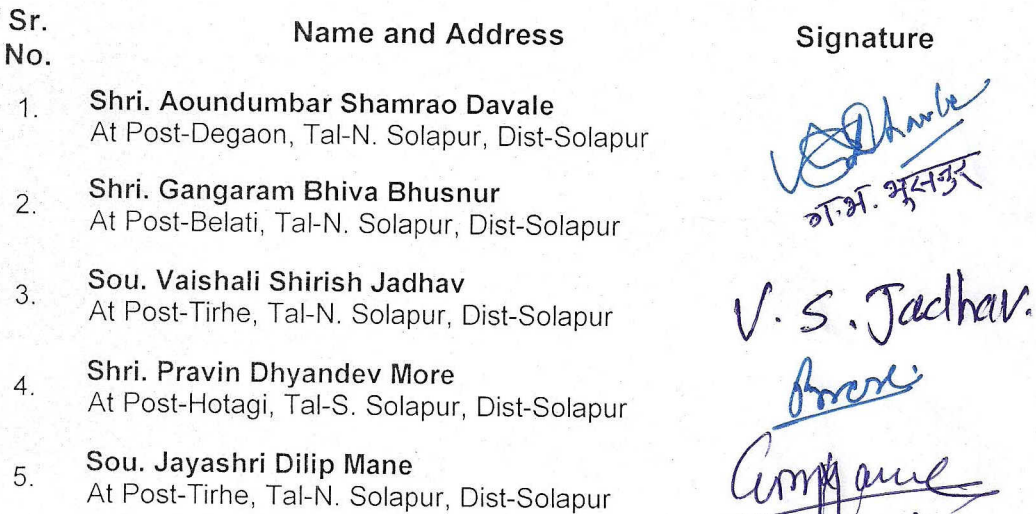 Sr. No. Name and Address Signature
1. Shri. Aoundumbar Shamrao Davale
At Post-Degaon, Tal-N. Solapur, Dist-Solapur
2. Shri. Gangaram Bhiva Bhusnur
ग.भ. भुसनुर
At Post-Belati, Tal-N. Solapur, Dist-Solapur
3. Sou. Vaishali Shirish Jadhav
V. S. Jadhav.
At Post-Tirhe, Tal-N. Solapur, Dist-Solapur
4. Shri. Pravin Dhyandev More
At Post-Hotagi, Tal-S. Solapur, Dist-Solapur
5. Sou. Jayashri Dilip Mane
At Post-Tirhe, Tal-N. Solapur, Dist-Solapur